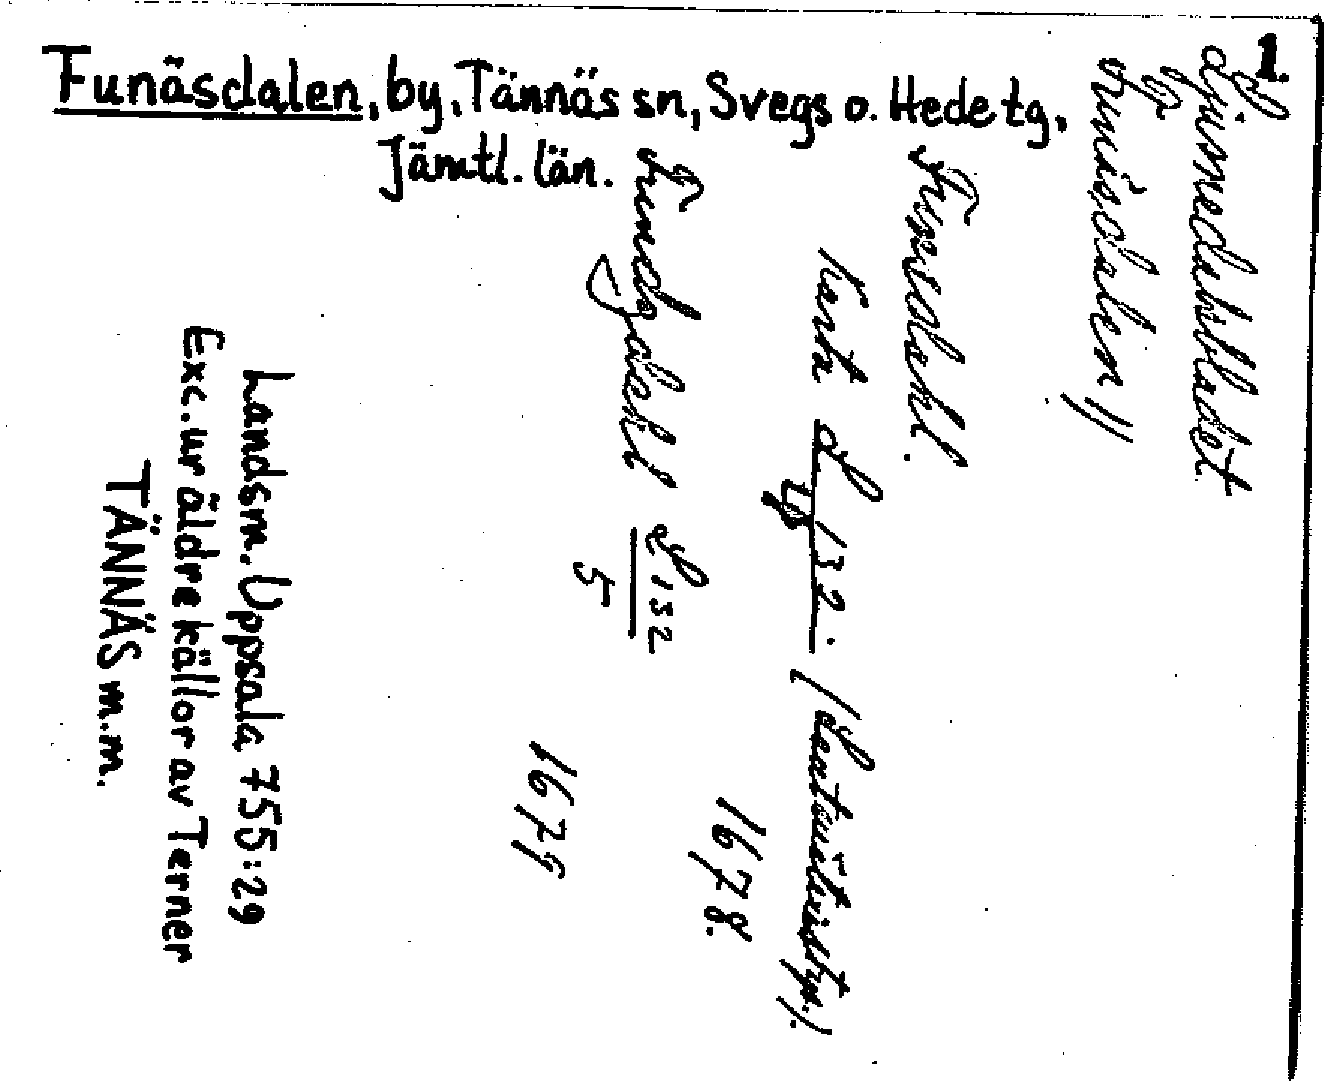 1.
Funäsdalen, by, Tännäs sn, Svegs o. Hede tg,
Jämtl. län.
Ljusnedalsbladet.
Funäsdalen
Funsdahl.
Karta L 132. (Lantmäteristyr.).
1678.
Funds dahl L 132
5
1679
Landsm. Uppsala 755:29
Exc. ur äldre källor av Terner
TÄNNÄS m.m.